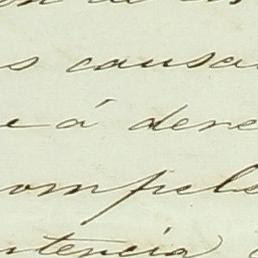 s causa
e á dere
ompels
ntencia